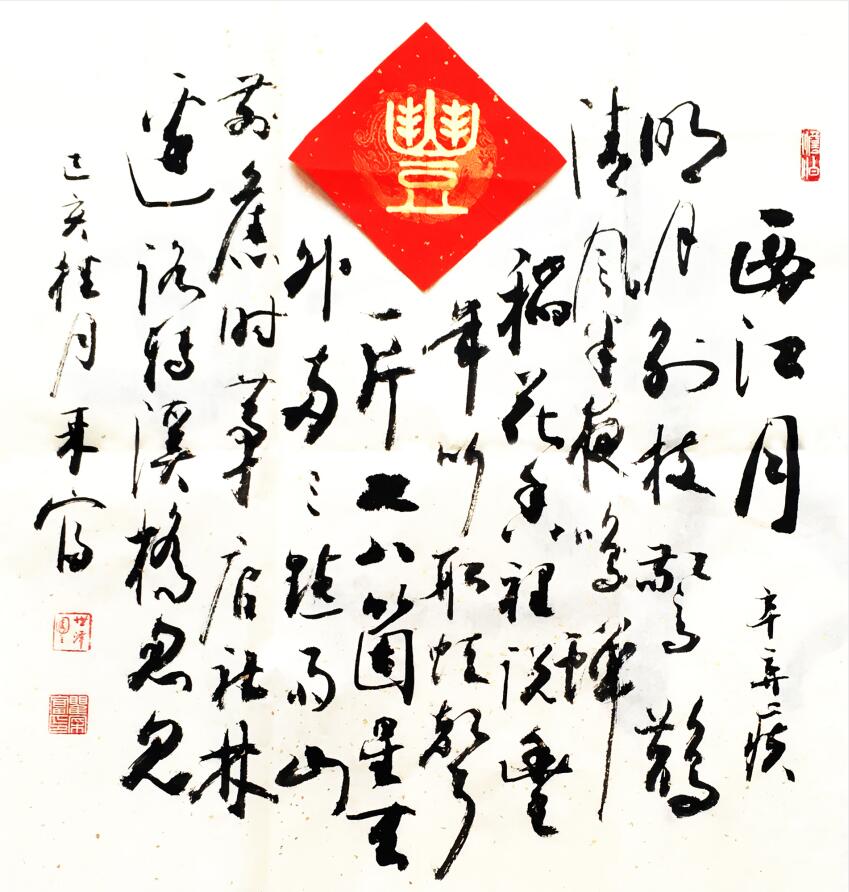 豐
西江月 辛弃疾
明月别枝驚鵲
清風半夜鳴蟬
稻花香裡說豐
年听取蛙聲
一片七八箇星天
外兩三點雨山
前舊時茅店社林
邊路轉溪橋忽見
己亥桂月